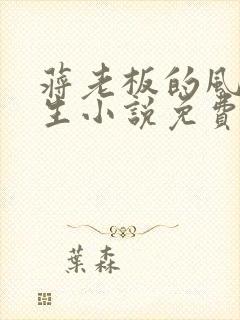 蔣老板的風
生小說免費
葉森